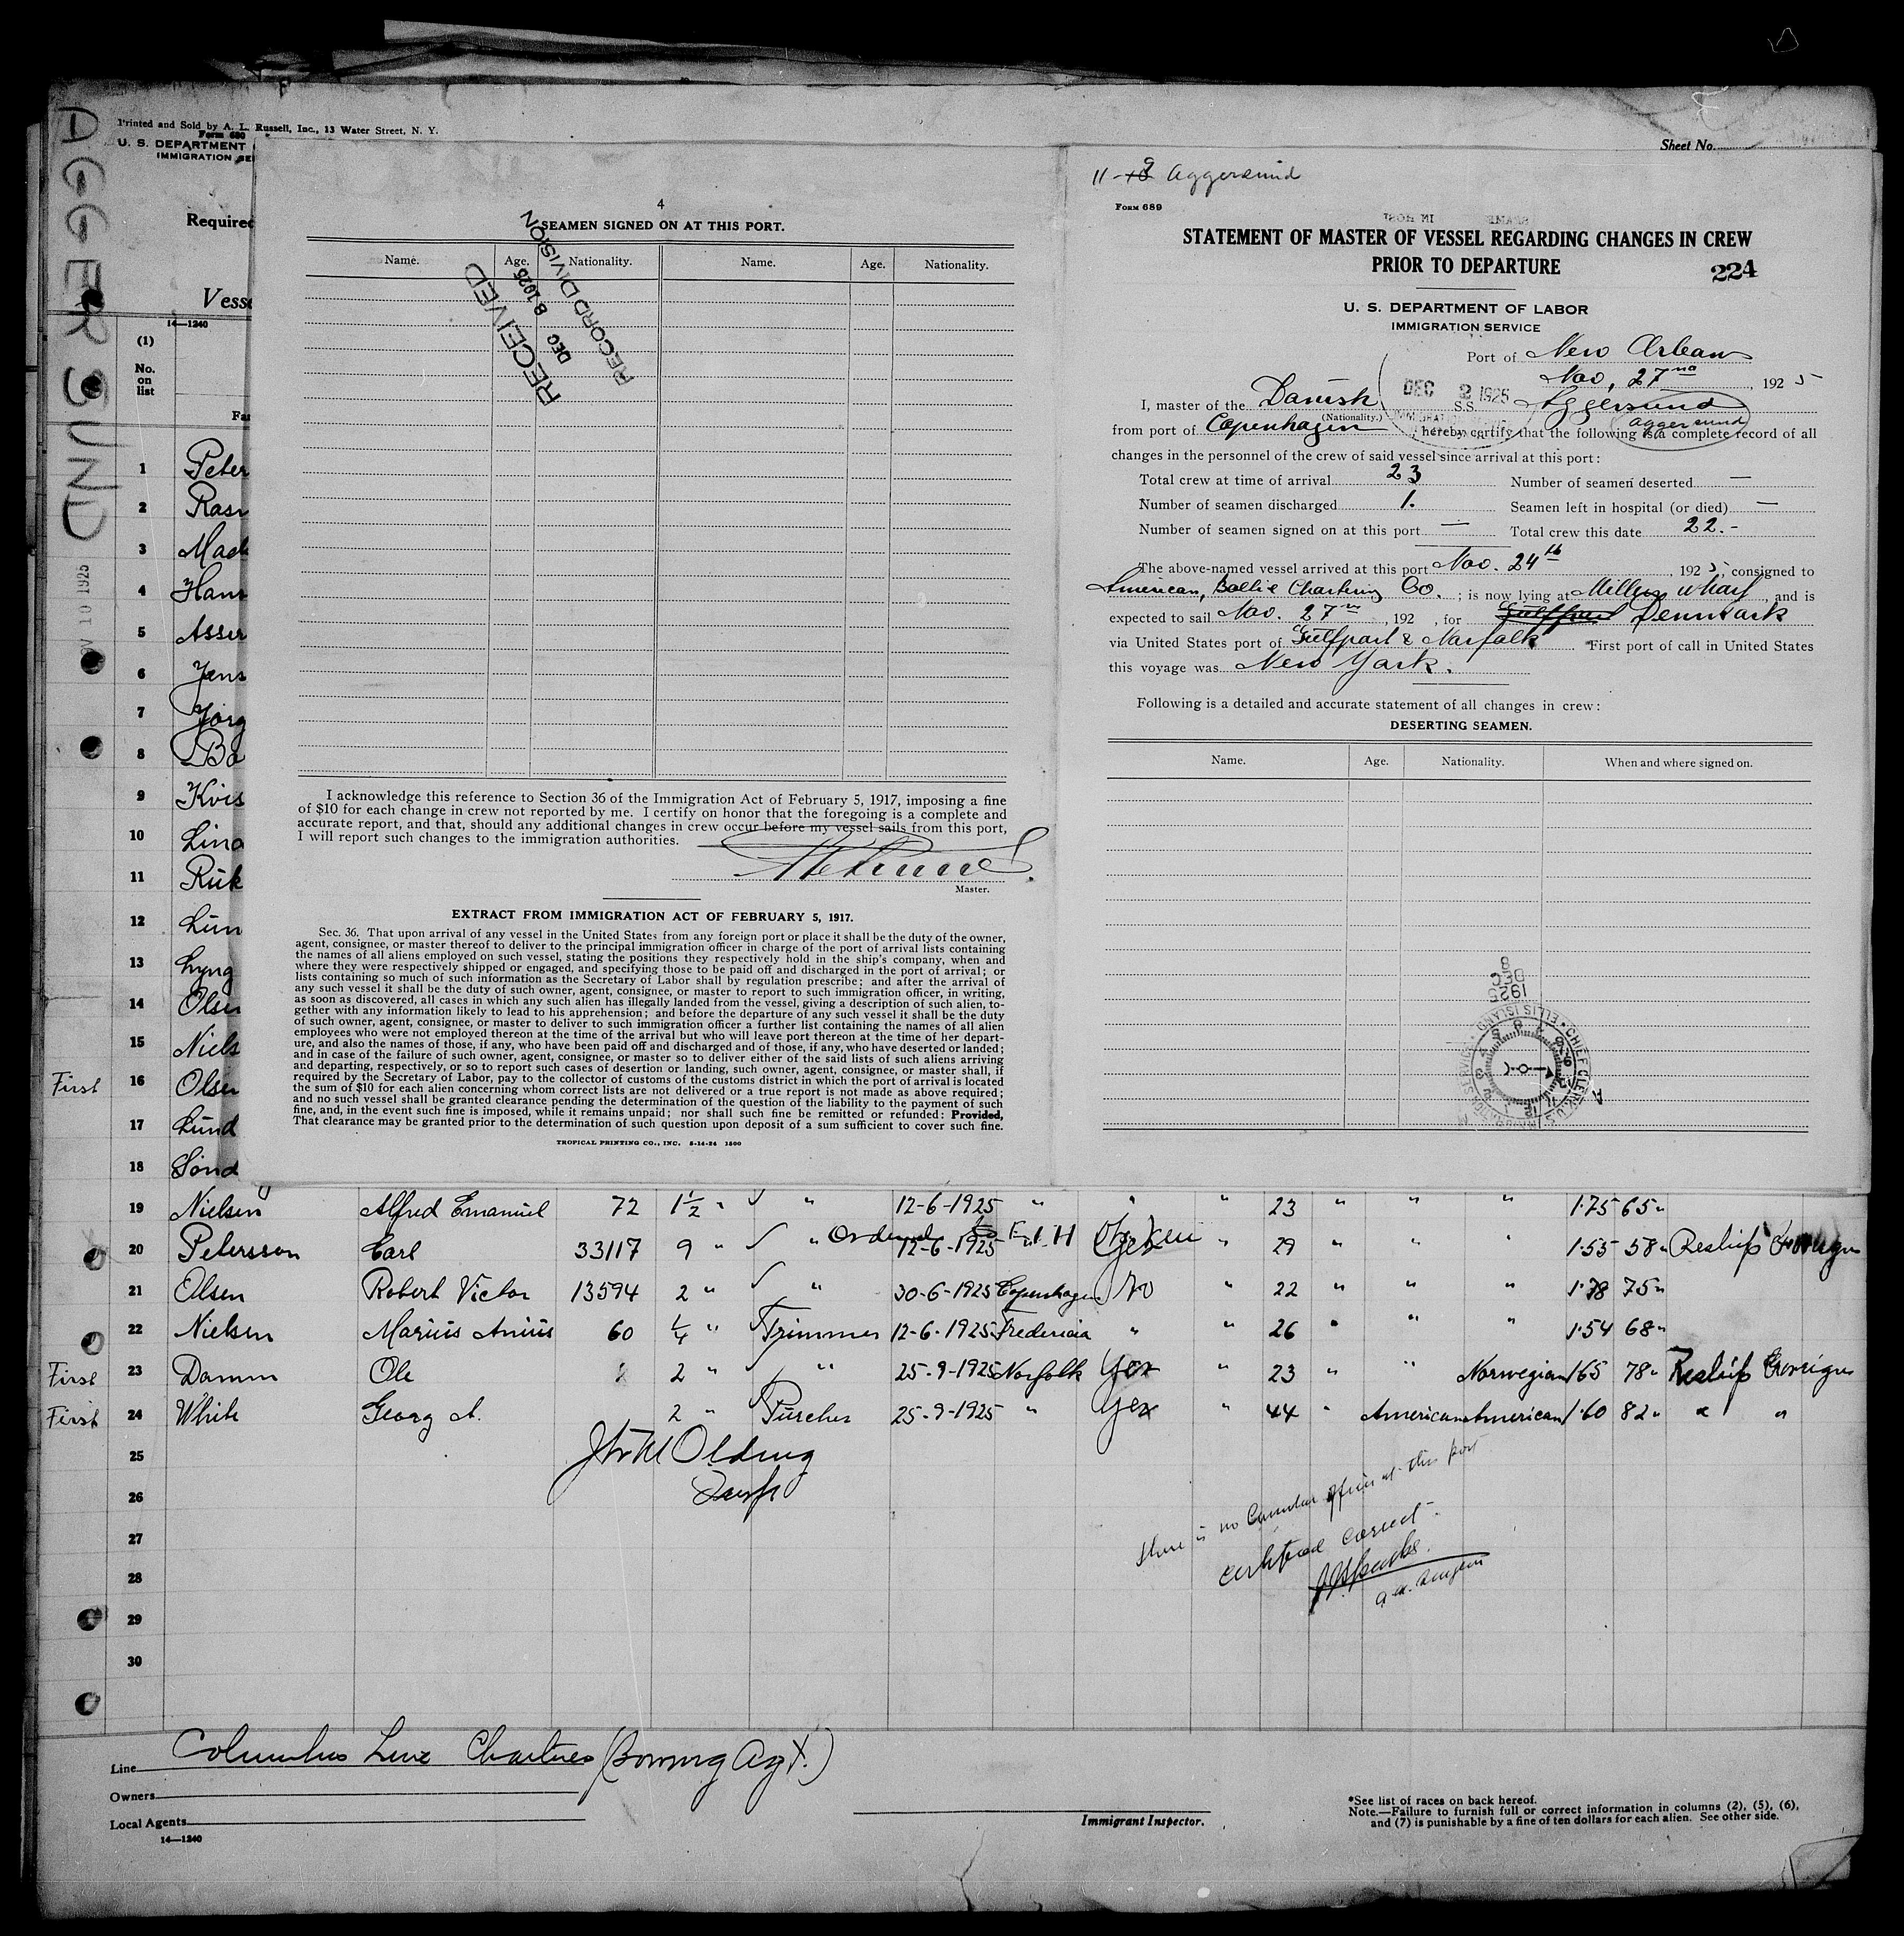 Printed and Sold by A. L. Russell, Inc., 13 Water Street, N. Y.
Form 680
U. S. DEPARTMENT
IMMIGRATION SE
Sheet No.
AGGERSUND
Required
Vesse
14—1240
(1)
No.
on
list
Fa
NOV 10 1925
1 Peter
2 Rasm
3 Mad
4 Hans
5 Asser
6 Jens
7 Jörg
8 Ba
9 Kvis
10 Lind
11 Rük
12 Lün
13 Lyng
14 Olsen
15 Niels
First 16 Olsen
17 Lünd
18 Sönd
4
SEAMEN SIGNED ON AT THIS PORT.
Name. Age. Nationality. Name. Age. Nationality.
RECEIVED
DEC 8 1925
RECORD DIVISION
I acknowledge this reference to Section 36 of the Immigration Act of February 5, 1917, imposing a fine
of $10 for each change in crew not reported by me. I certify on honor that the foregoing is a complete and
accurate report, and that, should any additional changes in crew occur before my vessel sails from this port,
I will report such changes to the immigration authorities.
Master.
EXTRACT FROM IMMIGRATION ACT OF FEBRUARY 5, 1917.
Sec. 36. That upon arrival of any vessel in the United States from any foreign port or place it shall be the duty of the owner,
agent, consignee, or master thereof to deliver to the principal immigration officer in charge of the port of arrival lists containing
the names of all aliens employed on such vessel, stating the positions they respectively hold in the ship's company, when and
where they were respectively shipped or engaged, and specifying those to be paid off and discharged in the port of arrival; or
lists containing so much of such information as the Secretary of Labor shall by regulation prescribe; and after the arrival of
any such vessel it shall be the duty of such owner, agent, consignee, or master to report to such immigration officer, in writing,
as soon as discovered, all cases in which any such alien has illegally landed from the vessel, giving a description of such alien, to-
gether with any information likely to lead to his apprehension; and before the departure of any such vessel it shall be the duty
of such owner, agent, consignee, or master to deliver to such immigration officer a further list containing the names of all alien
employees who were not employed thereon at the time of the arrival but who will leave port thereon at the time of her depart-
ure, and also the names of those, if any, who have been paid off and discharged and of those, if any, who have deserted or landed;
and in case of the failure of such owner, agent, consignee, or master so to deliver either of the said lists of such aliens arriving
and departing, respectively, or so to report such cases of desertion or landing, such owner, agent, consignee, or master shall, if
required by the Secretary of Labor, pay to the collector of customs of the customs district in which the port of arrival is located
the sum of $10 for each alien concerning whom correct lists are not delivered or a true report is not made as above required;
and no such vessel shall be granted clearance pending the determination of the question of the liability to the payment of such
fine, and, in the event such fine is imposed, while it remains unpaid; nor shall such fine be remitted or refunded: Provided,
That clearance may be granted prior to the determination of such question upon deposit of a sum sufficient to cover such fine.
TROPICAL PRINTING CO., INC. 5-14-24 1500
11-9 Aggersund
Form 689
STATEMENT OF MASTER OF VESSEL REGARDING CHANGES IN CREW
PRIOR TO DEPARTURE
224
U. S. DEPARTMENT OF LABOR
IMMIGRATION SERVICE
Port of New Orleans
Nov, 27nd, 1925
DEC 2 1925
I, master of the Danish (Nationality.) S.S. Aggersund
Aggersund
from port of Copenhagen, hereby certify that the following is a complete record of all
changes in the personnel of the crew of said vessel since arrival at this port:
Total crew at time of arrival 23 Number of seamen deserted —
Number of seamen discharged 1. Seamen left in hospital (or died) —
Number of seamen signed on at this port — Total crew this date 22.-
The above-named vessel arrived at this port Nov. 24th, 1925, consigned to
American, Baltic Chartering Co.; is now lying at Millers wharf, and is
expected to sail Nov. 27, 192 , for Gulfport Denmark
via United States port of Gulfport & Norfolk *First port of call in United States
this voyage was New York.
Following is a detailed and accurate statement of all changes in crew:
DESERTING SEAMEN.
Name. Age. Nationality. When and where signed on.
DEC 8 1925
CHIEF CLERK U.S. IMMIGRATION SERVICE ELLIS ISLAND
19 Nielsen Alfred Emanuel 72 1½ " " 12-6-1925 " " " 23 " " " 1.75 65 "
Ordered
20 Petersson Carl 33117 9 " " 12-6-1925 Yes " 29 " " " 1.55 58 " Reship Foreign
21 Olsen Robert Victor 13594 2 " " 30-6-1925 Copenhagen No " 22 " " " 1.78 75 "
22 Nielsen Marius Anius 60 ¼ " Trimmer 12-6-1925 Fredericia " " 26 " " " 1.54 68 "
First 23 Damm Ole 2 " " 25-9-1925 Norfolk Yes " 23 " " Norwegian 165 78 " Reship Foreign
First 24 White Georg A. 2 " Purcher 25-9-1925 " Yes " 44 " American American 1.60 82 " " "
25
26
27
28
29
30
There is no Consular officer at this port
Certified correct.
Columbus Line Charters (Bowring Agt.)
Line
Owners
Local Agents
14—1240
Immigrant Inspector.
*See list of races on back hereof.
Note.—Failure to furnish full or correct information in columns (2), (5), (6),
and (7) is punishable by a fine of ten dollars for each alien. See other side.